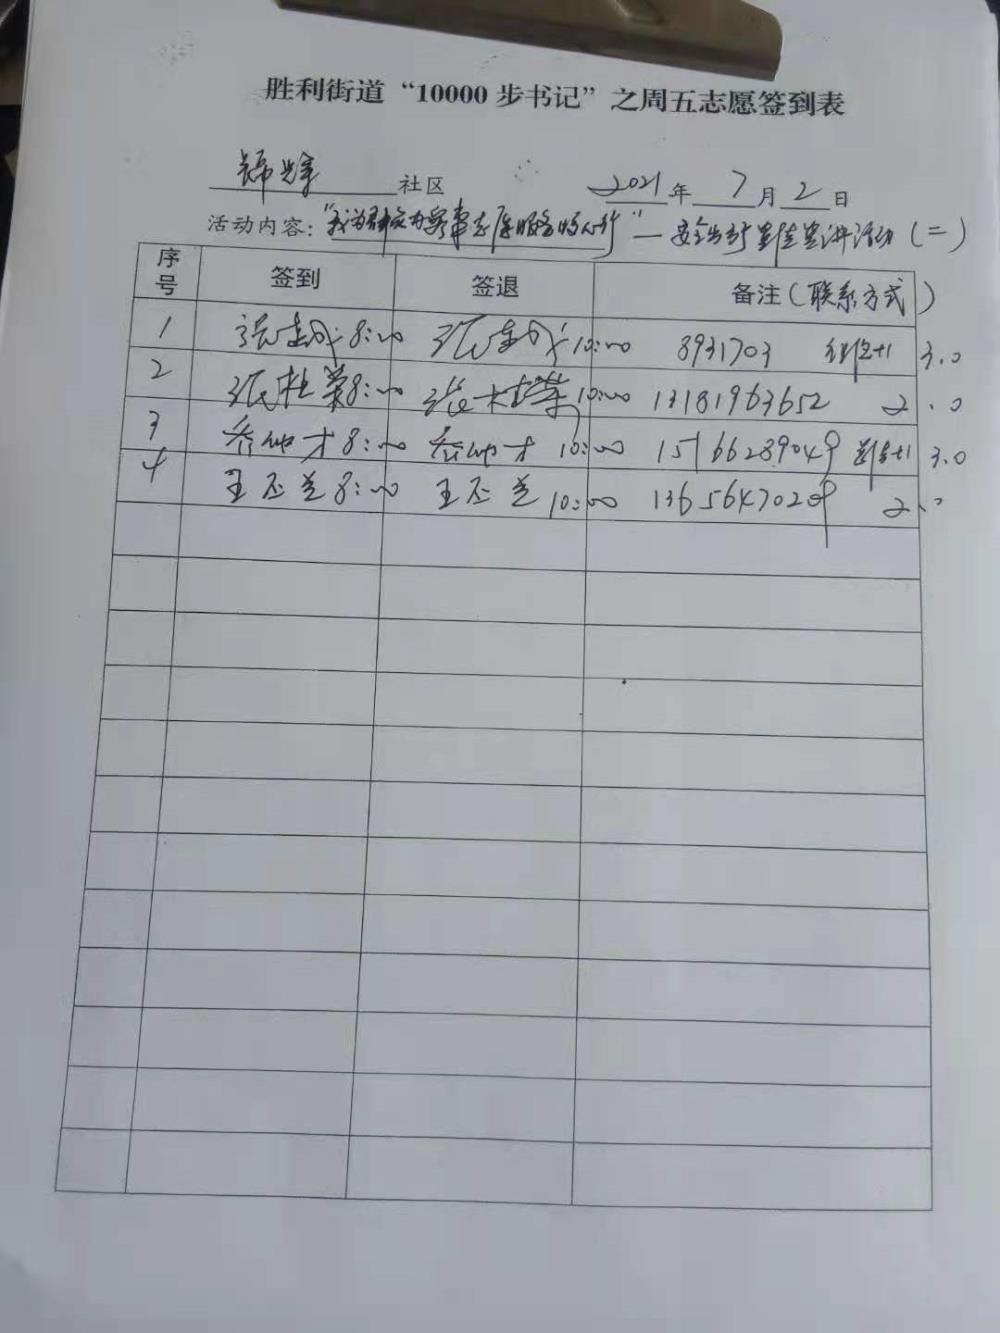 胜利街道“10000步书记”之周五志愿签到表
锦华社区 2021年7月2日
活动内容：“我为群众办实事志愿服务我先行”—安全出行宣传宣讲活动（二）
序号 签到 签退 备注（联系方式）
1 8:00 10:00 8931703 +1 3.0
2 张桂荣8:00 张桂荣10:00 13181963652 2.0
3 乔仙才8:00 乔仙才10:00 15166289049 +1 3.0
4 王丕兰8:00 王丕兰10:00 13656470209 2.0